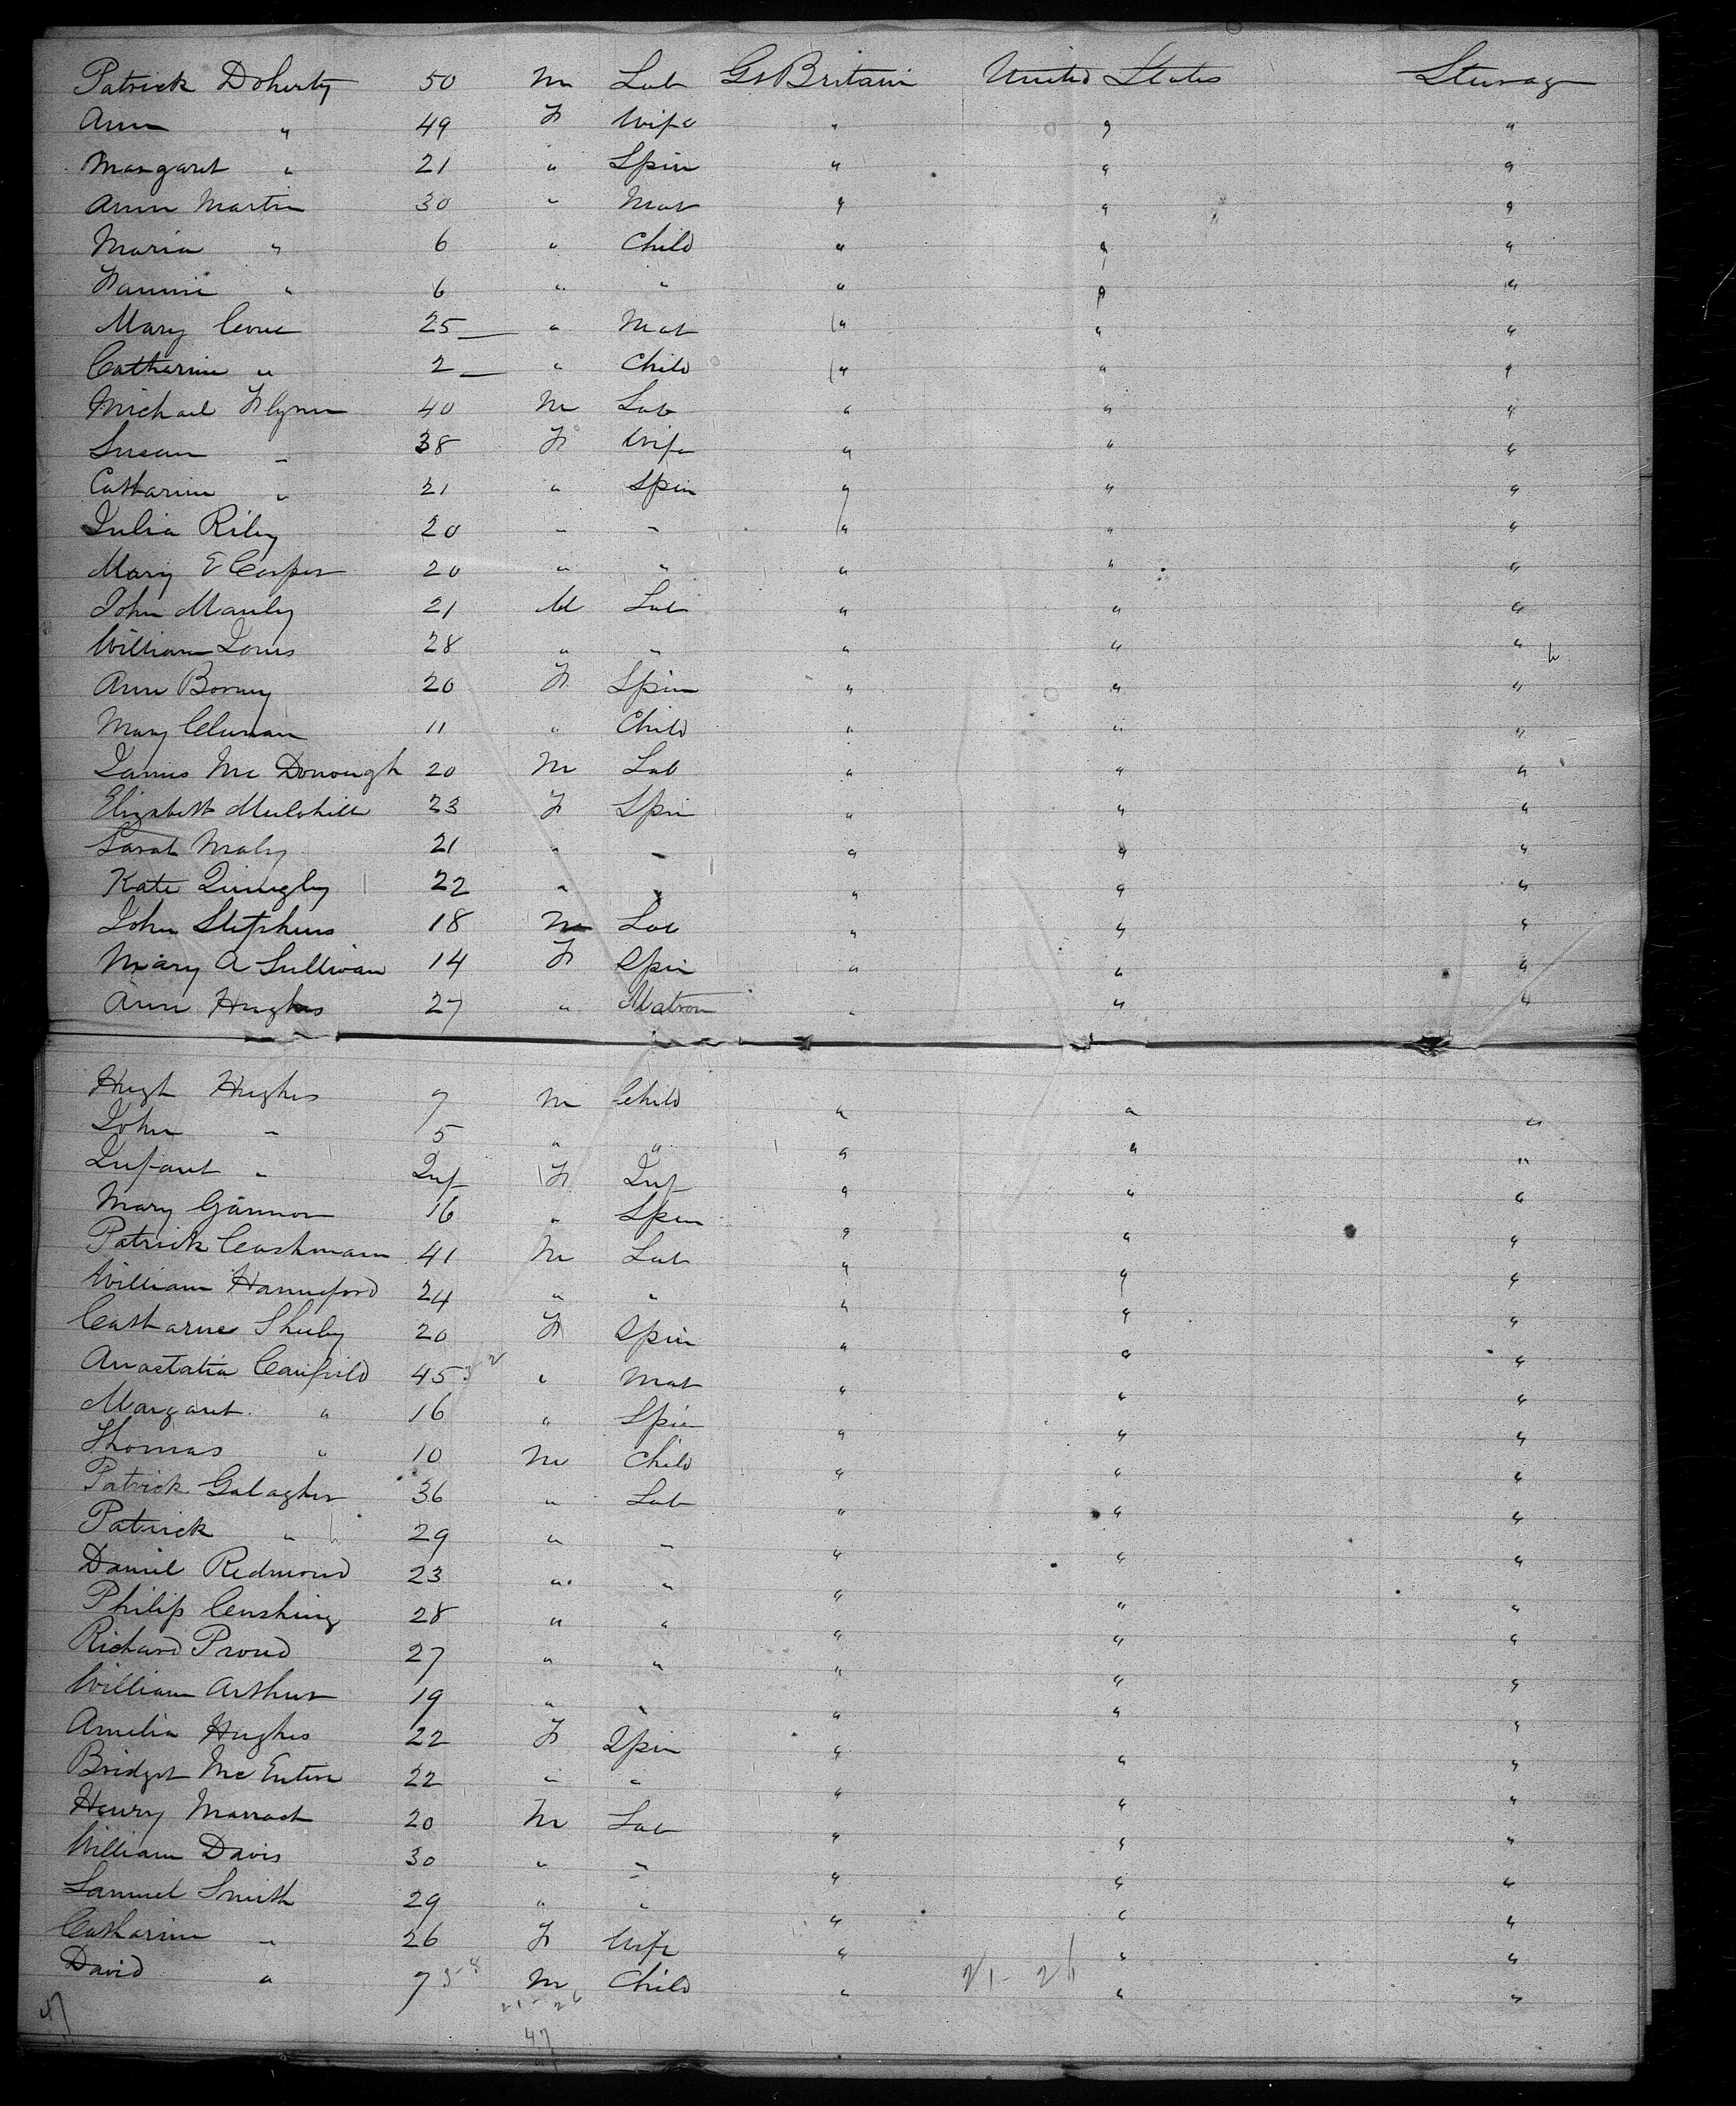 Patrick Doherty 50 M Lab Gt Britain United States Steerag
Ann " 49 F Wife " " "
Margaret " 21 " Spin " " "
Ann Martin 30 " Mat " " "
Maria " 6 " Child " " "
Fannie " 6 " " " " "
Mary Cone 25 " Mat " " "
Catharine " 2 " Child " " "
Michael Flynn 40 M Lab " " "
Susan " 38 F Wife " " "
Catharine " 21 " Spin " " "
Julia Riley 20 " " " " "
Mary E Cooper 20 " " " " "
John Manly 21 M Lab " " "
William Jones 28 " " " " "
Ann 20 F Spin " " "
Mary 11 " Child " " "
James Mc Donough 20 M Lab " " "
Elizabeth Mulvhill 23 F Spin " " "
Sarah Maly 21 " " " " "
Kate Quingley 22 " " " " "
John Stephens 18 M Lab " " "
Mary A Sullivan 14 F Spin " " "
Ann Hughes 27 " Matron " " "
Hugh Hughes 7 M Child " " "
John " 5 " " " " "
Infant " Inf F Inf " " "
Mary Gannon 16 " Spin " " "
Patrick Cashmann 41 M Lab " " "
William Hanneford 24 " " " " "
Catharine Sheeby 20 F Spin " " "
Anastatia Caufield 45 " Mat " " "
Margaret " 16 " Spin " " "
Thomas " 10 M Child " " "
Patrick Galagher 36 " Lab " " "
Patrick " 29 " " " " "
Daniel Redmond 23 " " " " "
Philip Cushing 28 " " " " "
Richard Proud 27 " " " " "
William Arthur 19 " " " " "
Amelia Hughes 22 F Spin " " "
Bridget Mc Entire 22 " " " " "
Henry 20 M Lab " " "
William Davis 30 " " " " "
Samuel Smith 29 " " " " "
Catharine " 26 F Wife " " "
David " 7 M Child " " "
21 - 26
47 21 - 26
47